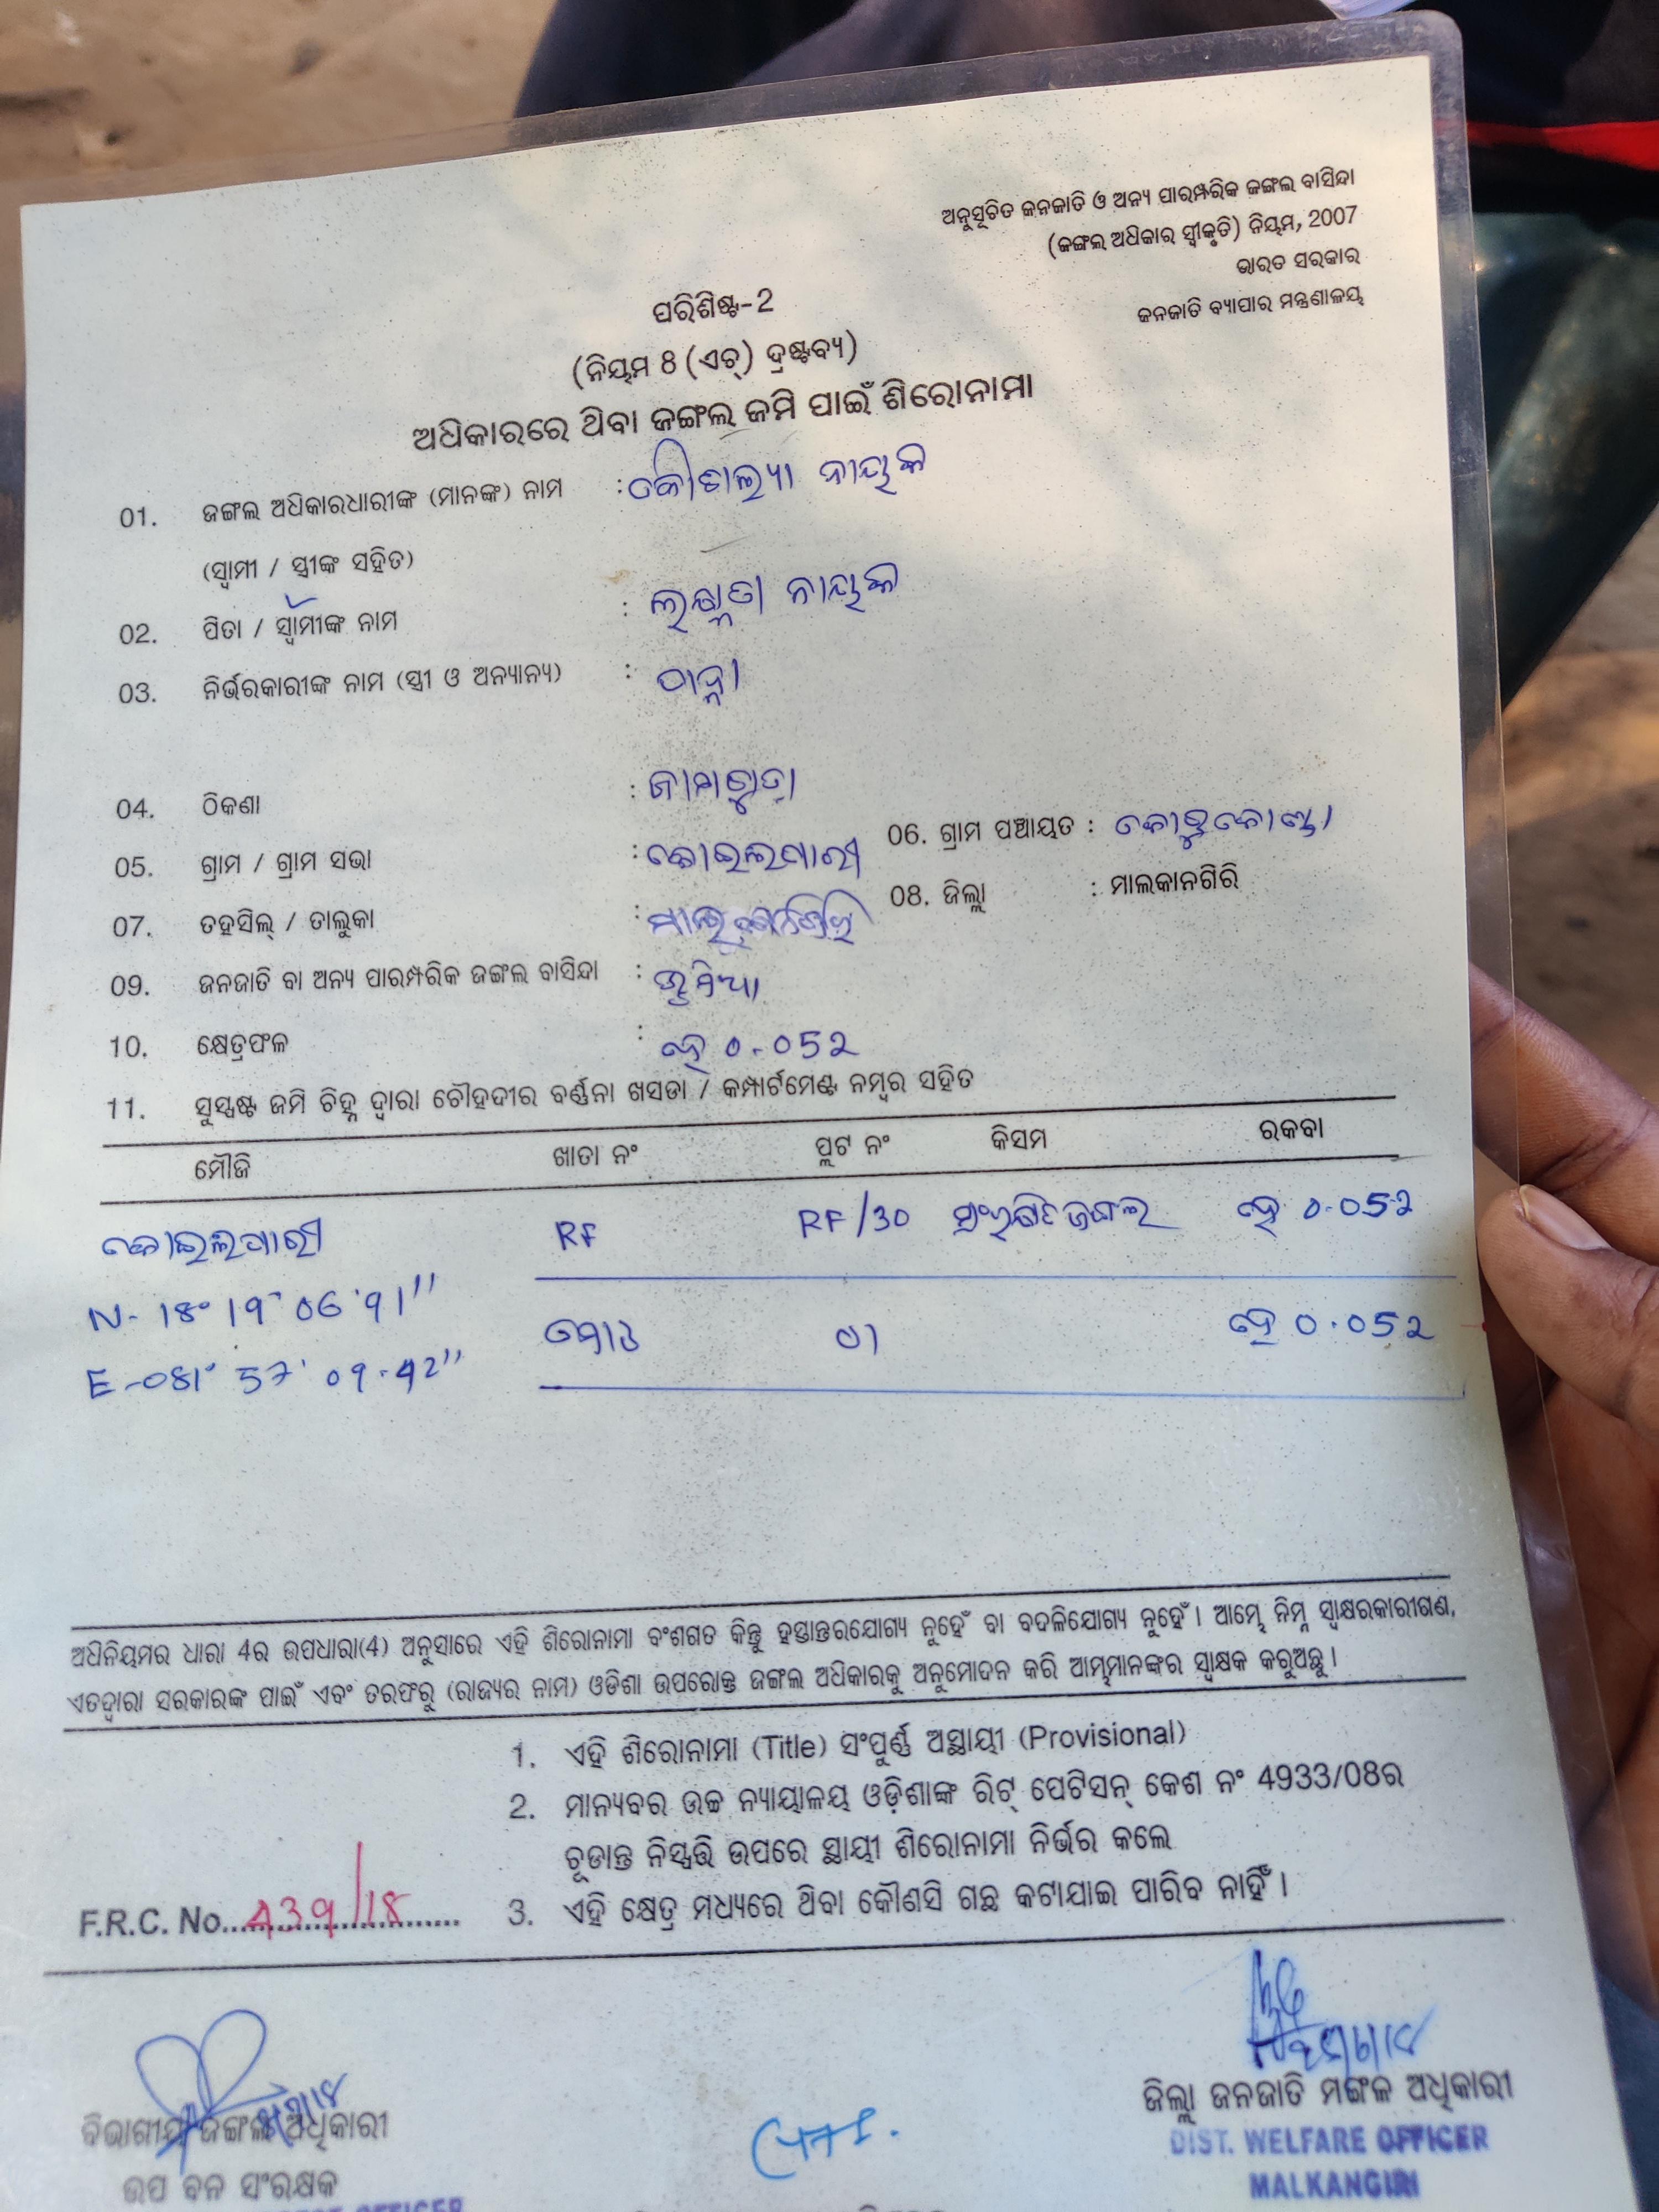 ଅନୁସୂଚିତ ଜନଜାତି ଓ ଅନ୍ୟ ପାରମ୍ପରିକ ଜଙ୍ଗଲ ବାସିନ୍ଦା
(ଜଙ୍ଗଲ ଅଧିକାର ସ୍ୱୀକୃତି) ନିୟମ, 2007
ଭାରତ ସରକାର
ଜନଜାତି ବ୍ୟାପାର ମନ୍ତ୍ରଣାଳୟ
ପରିଶିଷ୍ଟ-2
(ନିୟମ 8 (ଏଚ୍) ଦ୍ରଷ୍ଟବ୍ୟ)
ଅଧିକାରରେ ଥିବା ଜଙ୍ଗଲ ଜମି ପାଇଁ ଶିରୋନାମା
01. ଜଙ୍ଗଲ ଅଧିକାରଧାରୀଙ୍କ (ମାନଙ୍କ) ନାମ : କୌଶଲ୍ୟା ନାୟକ
(ସ୍ୱାମୀ / ସ୍ତ୍ରୀଙ୍କ ସହିତ)
02. ପିତା / ସ୍ୱାମୀଙ୍କ ନାମ : ନାୟକ
03. ନିର୍ଭରକାରୀଙ୍କ ନାମ (ସ୍ତ୍ରୀ ଓ ଅନ୍ୟାନ୍ୟ) :
04. ଠିକଣା :
05. ଗ୍ରାମ / ଗ୍ରାମ ସଭା : 06. ଗ୍ରାମ ପଞ୍ଚାୟତ : କୋରୁକୋଣ୍ଡା
07. ତହସିଲ୍ / ତାଲୁକା : 08. ଜିଲ୍ଲା : ମାଲକାନଗିରି
09. ଜନଜାତି ବା ଅନ୍ୟ ପାରମ୍ପରିକ ଜଙ୍ଗଲ ବାସିନ୍ଦା : ଭୂମିଆ
10. କ୍ଷେତ୍ରଫଳ : ହେ 0.052
11. ସୁସ୍ପଷ୍ଟ ଜମି ଚିହ୍ନ ଦ୍ୱାରା ଚୌହଦୀର ବର୍ଣ୍ଣନା ଖସଡା / କମ୍ପାର୍ଟମେଣ୍ଟ ନମ୍ବର ସହିତ
ମୌଜି ଖାତା ନଂ ପ୍ଲଟ ନଂ କିସମ ରକବା
RF RF/30 ସଂରକ୍ଷିତ ଜଙ୍ଗଲ ହେ 0.052
N- 18° 19' 06.91"
ମୋଟ 01 ହେ 0.052
E-081° 57' 09.42"
ଅଧିନିୟମର ଧାରା 4ର ଉପଧାରା(4) ଅନୁସାରେ ଏହି ଶିରୋନାମା ବଂଶଗତ କିନ୍ତୁ ହସ୍ତାନ୍ତରଯୋଗ୍ୟ ନୁହେଁ ବା ବଦଳିଯୋଗ୍ୟ ନୁହେଁ । ଆମ୍ଭେ ନିମ୍ନ ସ୍ୱାକ୍ଷରକାରୀଗଣ,
ଏତଦ୍ୱାରା ସରକାରଙ୍କ ପାଇଁ ଏବଂ ତରଫରୁ (ରାଜ୍ୟର ନାମ) ଓଡିଶା ଉପରୋକ୍ତ ଜଙ୍ଗଲ ଅଧିକାରକୁ ଅନୁମୋଦନ କରି ଆମ୍ଭମାନଙ୍କର ସ୍ୱାକ୍ଷକ କରୁଅଛୁ ।
1. ଏହି ଶିରୋନାମା (Title) ସଂପୁର୍ଣ୍ଣ ଅସ୍ଥାୟୀ (Provisional)
2. ମାନ୍ୟବର ଉଚ୍ଚ ନ୍ୟାୟାଳୟ ଓଡ଼ିଶାଙ୍କ ରିଟ୍ ପେଟିସନ୍ କେଶ ନଂ 4933/08ର
ଚୂଡାନ୍ତ ନିସ୍ପତ୍ତି ଉପରେ ସ୍ଥାୟୀ ଶିରୋନାମା ନିର୍ଭର କଲେ
F.R.C. No. 439/18
3. ଏହି କ୍ଷେତ୍ର ମଧ୍ୟରେ ଥିବା କୌଣସି ଗଛ କଟାଯାଇ ପାରିବ ନାହିଁ ।
ବିଭାଗୀୟ ଜଙ୍ଗଲ ଅଧିକାରୀ
ଉପ ବନ ସଂରକ୍ଷକ
ଜିଲ୍ଲା ଜନଜାତି ମଙ୍ଗଳ ଅଧିକାରୀ
DIST. WELFARE OFFICER
MALKANGIRI